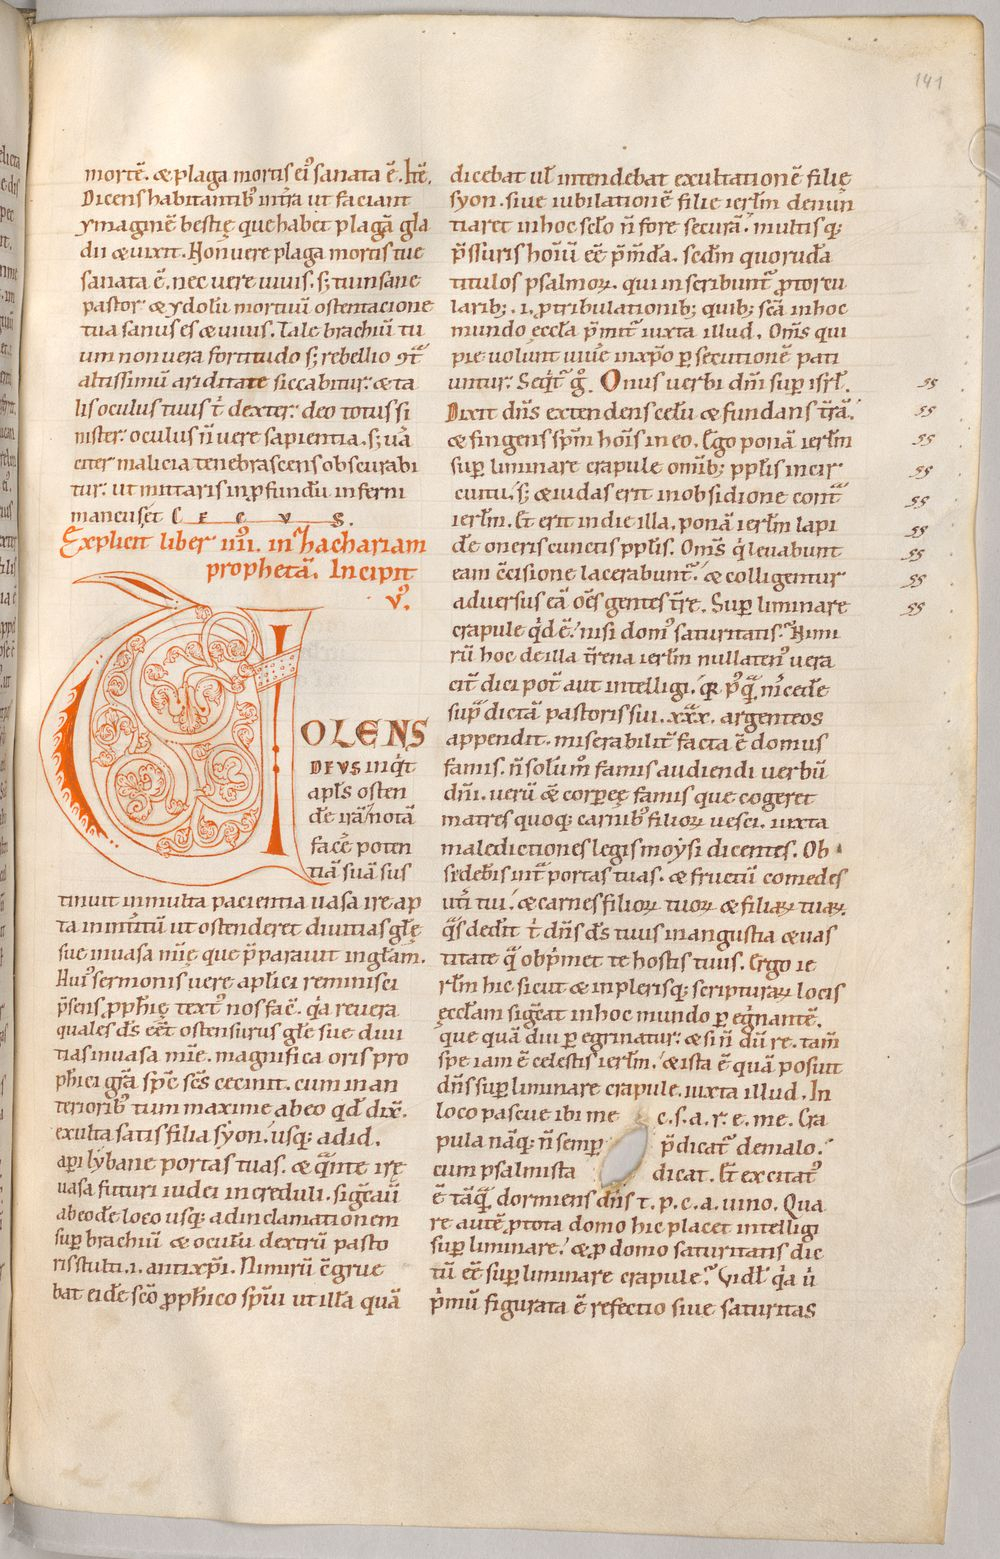 141
mortē. & plaga mortis ei᾽ sanata ē. Itē.
Dicens habitantib᾽ in tr̄a ut faciant
ymaginē bestię que habet plagā gla
dii & uixit. Non uere plaga mortis tue
sanata ē. nec uere uiuis. s; tu insane
pastor & ydolū mortuū ostentacione
tua sanus es & uiuis. Tale brachiū tu
um non uera fortitudo s; rebellio ɔtͣ
altissimū ariditate siccabitur. & ta
lis oculus tuus t̄ dexter. deo totus si
nister. oculus n̄ uere sapientia. s; uā
citer malicia tenebrascens obscurabi
tur. ut mittaris in pfundū inferni
manens et C E C V S.
Explicit liber iiii. in Zhachariam
prophetā. Incipit
v᾽.
VOLENS
DEVS inq̇t
apl̄s osten
de irā / notā
facē poten
tiā suā sus
tinuit in multa pacientia uasa irę ap
ta in int̄itū ut ostenderet diuitias glę
suę in uasa mīę que p̄parauit in gl̄am.
Hui᾽ sermonis uere aplici reminisci
p̄sens pphię text᾽ nos fac̄. q̇a reuera
quales ds̄ eēt ostensurus glę suę diui
tias in uasa mīę. magnifica oris pro
phici grā sp̄c sc̄s cecinit. cum in an
teriorib᾽ tum maxime ab eo qd̄ dix̄.
exulta satis filia syon. usq; ad id.
api lybane portas tuas. & qͣnte irę
uasa futuri iudei increduli. sigc̄aū
ab eode loco usq; ad inclamationem
sup brachiū & oculū dextrū pasto
ris stulti .i. antixp̄i. Nimirū ēgrue
bat eide sc̄o pphico sp̄ui ut illa quā
dicebat ul intendebat exultationē filię
syon. siue iubilationē filię ierl̄m denun
tiaret in hoc sclo n̄ fore securā. multis q;
p̄ssuris hoīū eē p̄m̄da. sedm quorūda
titulos psalmoꝝ. qui inscribuntͬ p torcu
larib; .i. p tribulationib; quib; sc̄ā in hoc
mundo eccl̄a p̄mitͬ iuxta illud. Om̄s qui
pie uolunt uiuē in xp̄o psecutionē pati
untur. Seq̇t᾽ g̊. Onus uerbi dn̄i sup isr̄l.
Dixit dn̄s extendens celū & fundans tr̄ā.
& fingens sp̄m hoīs in eo. Ego ponā ierl̄m
sup liminare crapule om̄ib; pplis in cir
cuitu. s; & iudas erit in obsidione contͣ
ierl̄m. Et erit in die illa. ponā ierl̄m lapi
de oneris cunctis pplis. Om̄s q̇ leuabunt
eam c̄cisione lacerabuntͬ. & colligentur
aduersus eā om̄s gentes tr̄e. Sup liminare
crapule q̇d ē. nisi dom᾽ saturitatis. Nimi
rū hoc de illa tr̄ena ierl̄m nullaten᾽ uera
cit̄ dici pot᾽ aut intelligi. q̄ p᾽qͣ m̄cede
sup̄ dictā pastoris sui. xxx. argenteos
appendit. miserabilit̄ facta ē domus
famis. n̄ solum̄ famis audiendi uerbū
dn̄i. uerū & corpeę famis que cogeret
matres quoq; carnib᾽ filioꝝ uesci. iuxta
maledictiones legis moysi dicentes. Ob
sedeb̄is int̄ portas tuas. & fructū comedes
ut̄i tui. & carnes filioꝝ tuoꝝ & filiaꝝ tuaꝝ.
qͣs dedit t̄ dn̄s ds̄ tuus in angustia & uas
titate qͣ obp̄met te hostis tuus. Ergo ie
rl̄m hic sicut & in plerisq; scripturaꝝ locis
eccl̄am sigc̄at in hoc mundo p egnantē.
que quādiu peregrinatur. & si n̄ dū re. tam̄
spe iam ē celestis ierl̄m. & ista ē quā posuit
dn̄s sup liminare crapule. iuxta illud. In
loco pascue ibi me c.s.a.r.e.me. Cra
pula nāq; n̄ semp p̄dicatͬ de malo.
cum psalmista dicat. Et excitat᾽
ē tāqͣ dormiens dn̄s t. p. c. a uino. Qua
re autē p tota domo hic placet intelligi
sup liminare. & p domo saturitatis dic
tū eē sup liminare crapule. Vidl̄ q̇a u̇
p̄mū figurata ē refectio siue saturitas